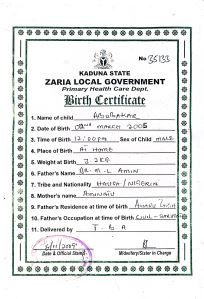 No 35133
KADUNA STATE
ZARIA LOCAL GOVERNMENT
Primary Health Care Dept.
Birth Certificate
1. Name of child ABUBAKAR
2. Date of Birth 02nd MARCH 2005
3. Time of Birth 12:00PM Sex of Child MALE
4. Place of Birth AT HOME
5. Weight at Birth 3.2KG
6. Father's Name DR. M. L AMIN
7. Tribe and Nationality HAUSA / NIGERIA
8. Mother's name
9. Father's Residence at time of birth
10. Father's Occupation at time of Birth CIVIL-SERVANT
11. Delivered by T. B A
Date & Official Stamp
Midwifery/Sister in Change